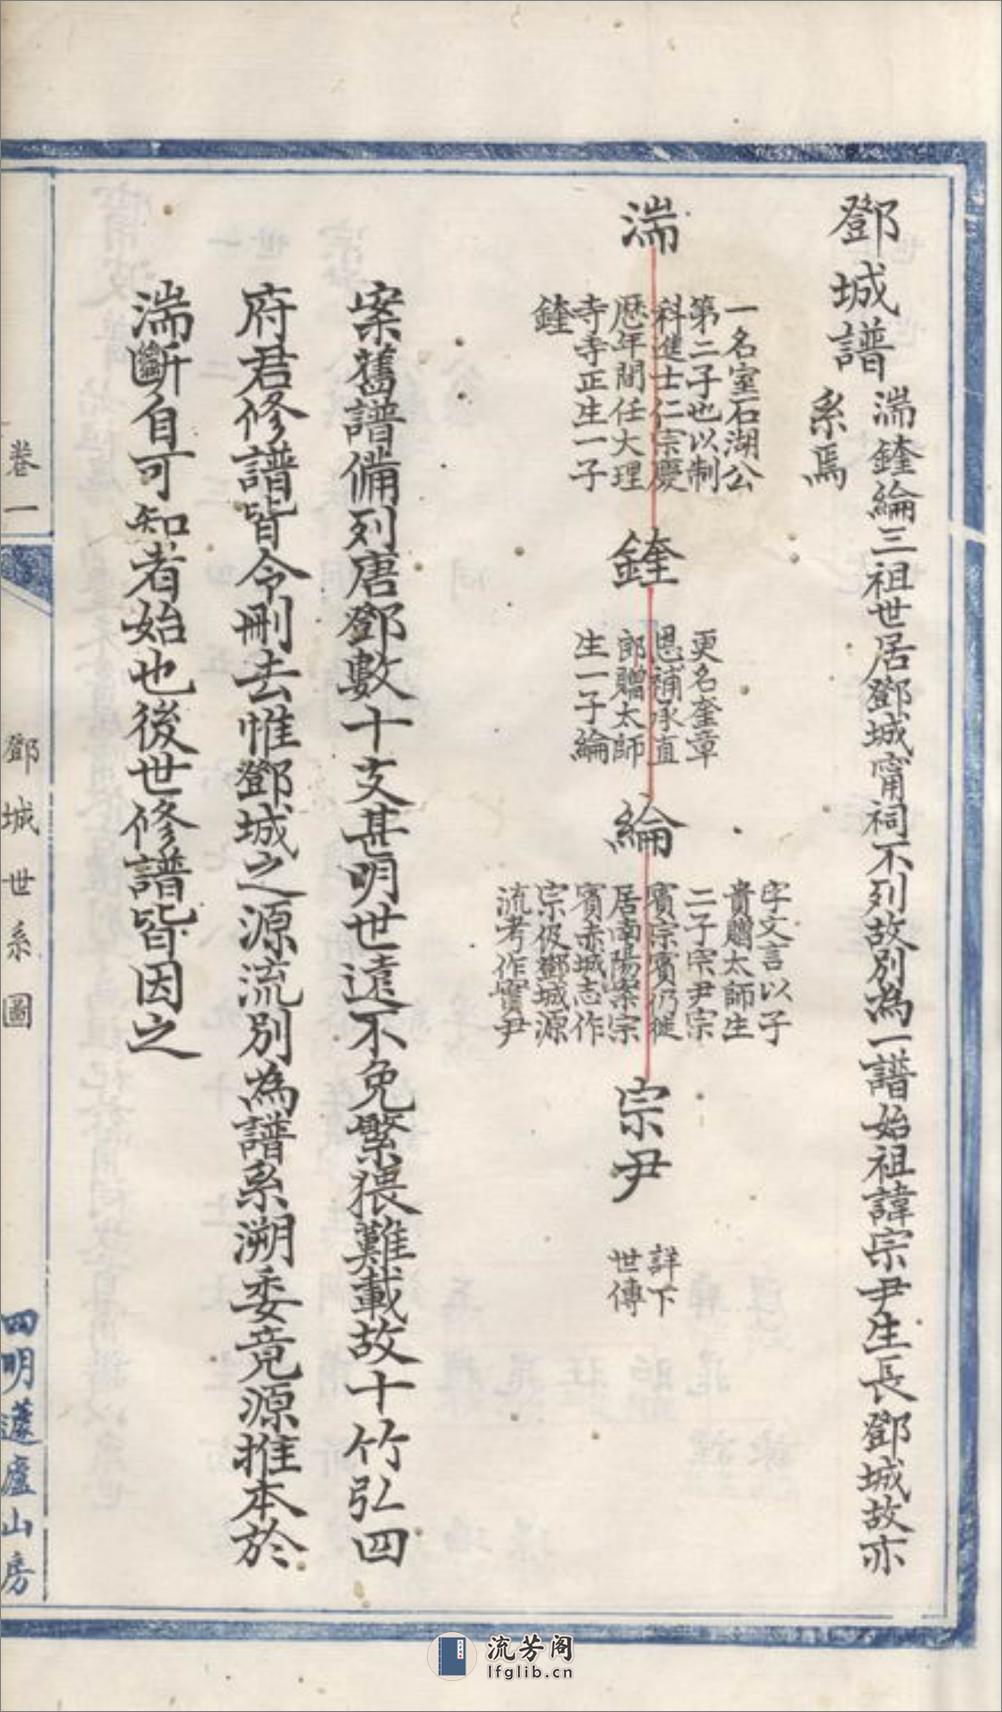 鄧城譜
湍鏠綸三祖世居鄧城甯祠不列故別為一譜始祖諱宗尹生長鄧城故亦
系焉
湍
一名室石湖公
第二子也以制
科進士仁宗慶
歷年間任大理
寺寺正生一子
鏠
鏠
更名奎章
恩補承直
郎贈太師
生一子綸
綸
字文言以子
貴贈太師生
二子宗尹宗
賓宗賓仍徙
居南陽案宗
賓赤城志作
宗伋鄧城源
流考作實尹
宗尹
詳下
世傳
案舊譜備列唐鄧數十支甚明世遠不免繁猥難載故十竹弘四
府君修譜皆令刪去惟鄧城之源流別為譜系溯委竟源推本於
湍斷自可知者始也後世修譜皆因之
卷一
鄧城世系圖
四明蘧廬山房
流芳阁
lfglib.cn